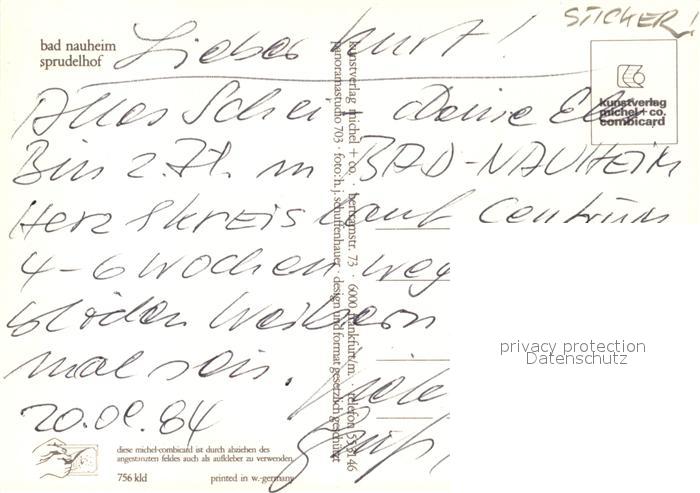 STICKER!
bad nauheim
sprudelhof
Lieber Kurt!
kunstverlag
michel + co.
combicard
Alles Deine
Bin z. Zt. in BAD-NAUHEIM
Herz Kreis Centrum
4-6 Wochen weg
blöden Weibern
mal sein. Viele
20.08.84 Grüße,
kunstverlag michel + co. · bertramstr. 73 · 6000 frankfurt/m. · telefon 555146
panoramastudio 703 · foto: h. j. schuffenhauer · design und format gesetzlich geschützt
privacy protection
Datenschutz
diese michel-combicard ist durch abziehen des
angestanzten feldes auch als aufkleber zu verwenden.
756 kld printed in w.-germany